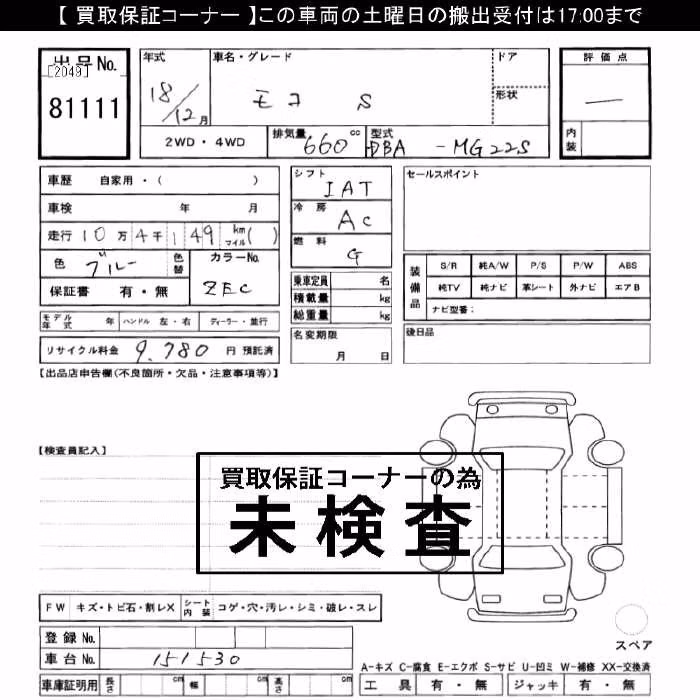 【 買取保証コーナー 】この車両の土曜日の搬出受付は17:00まで
出品No.
[2049]
81111
年式
18/12月
車名・グレード
モコ S
ドア
形状
評価点
—
内装
2WD・4WD
排気量 660 cc
型式 DBA - MG22S
車歴 自家用・( )
車検 年 月
走行 10万4千149 km マイル( )
色 ブルー
色替
カラーNo.
ZEC
保証書 有・無
シフト IAT
冷房 AC
燃料 G
乗車定員 名
積載量 kg
総重量 kg
セールスポイント
装備品
S/R 純A/W P/S P/W ABS
純TV 純ナビ 革シート 外ナビ エアB
ナビ型番:
モデル年式 年 ハンドル 左・右 ディーラー・並行
名変期限
月 日
後日品
リサイクル料金 9,780 円 預託済
【出品店申告欄(不良箇所・欠品・注意事項等)】
【検査員記入】
買取保証コーナーの為
未検査
FW キズ・トビ石・割レX シート内装 コゲ・穴・汚レ・シミ・破レ・スレ
登録No.
車台No. 151530
スペア
A-キズ C-腐食 E-エクボ S-サビ U-凹ミ W-補修 XX-交換済
車庫証明用 長さ cm 幅 cm 高さ cm
工具 有・無 ジャッキ 有・無